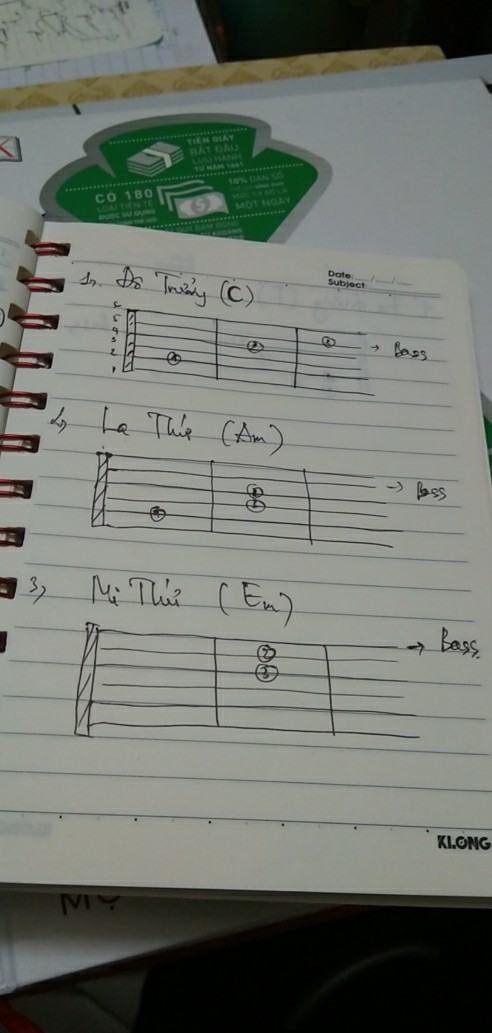 TIỀN GIẤY
BẮT ĐẦU
LƯU HÀNH
TỪ NĂM 1661
CÓ 180
LOẠI TIỀN TỆ
ĐƯỢC SỬ DỤNG
10% DÂN SỐ
MỘT NGÀY
Date: __/__/__
Subject
1, Đô Trưởng (C)
6
5
4
3
2
1
1
2
3
→ Bass
2, La Thứ (Am)
1
→ Bass
3, Mi Thứ (Em)
2
3
→ Bass
KLONG